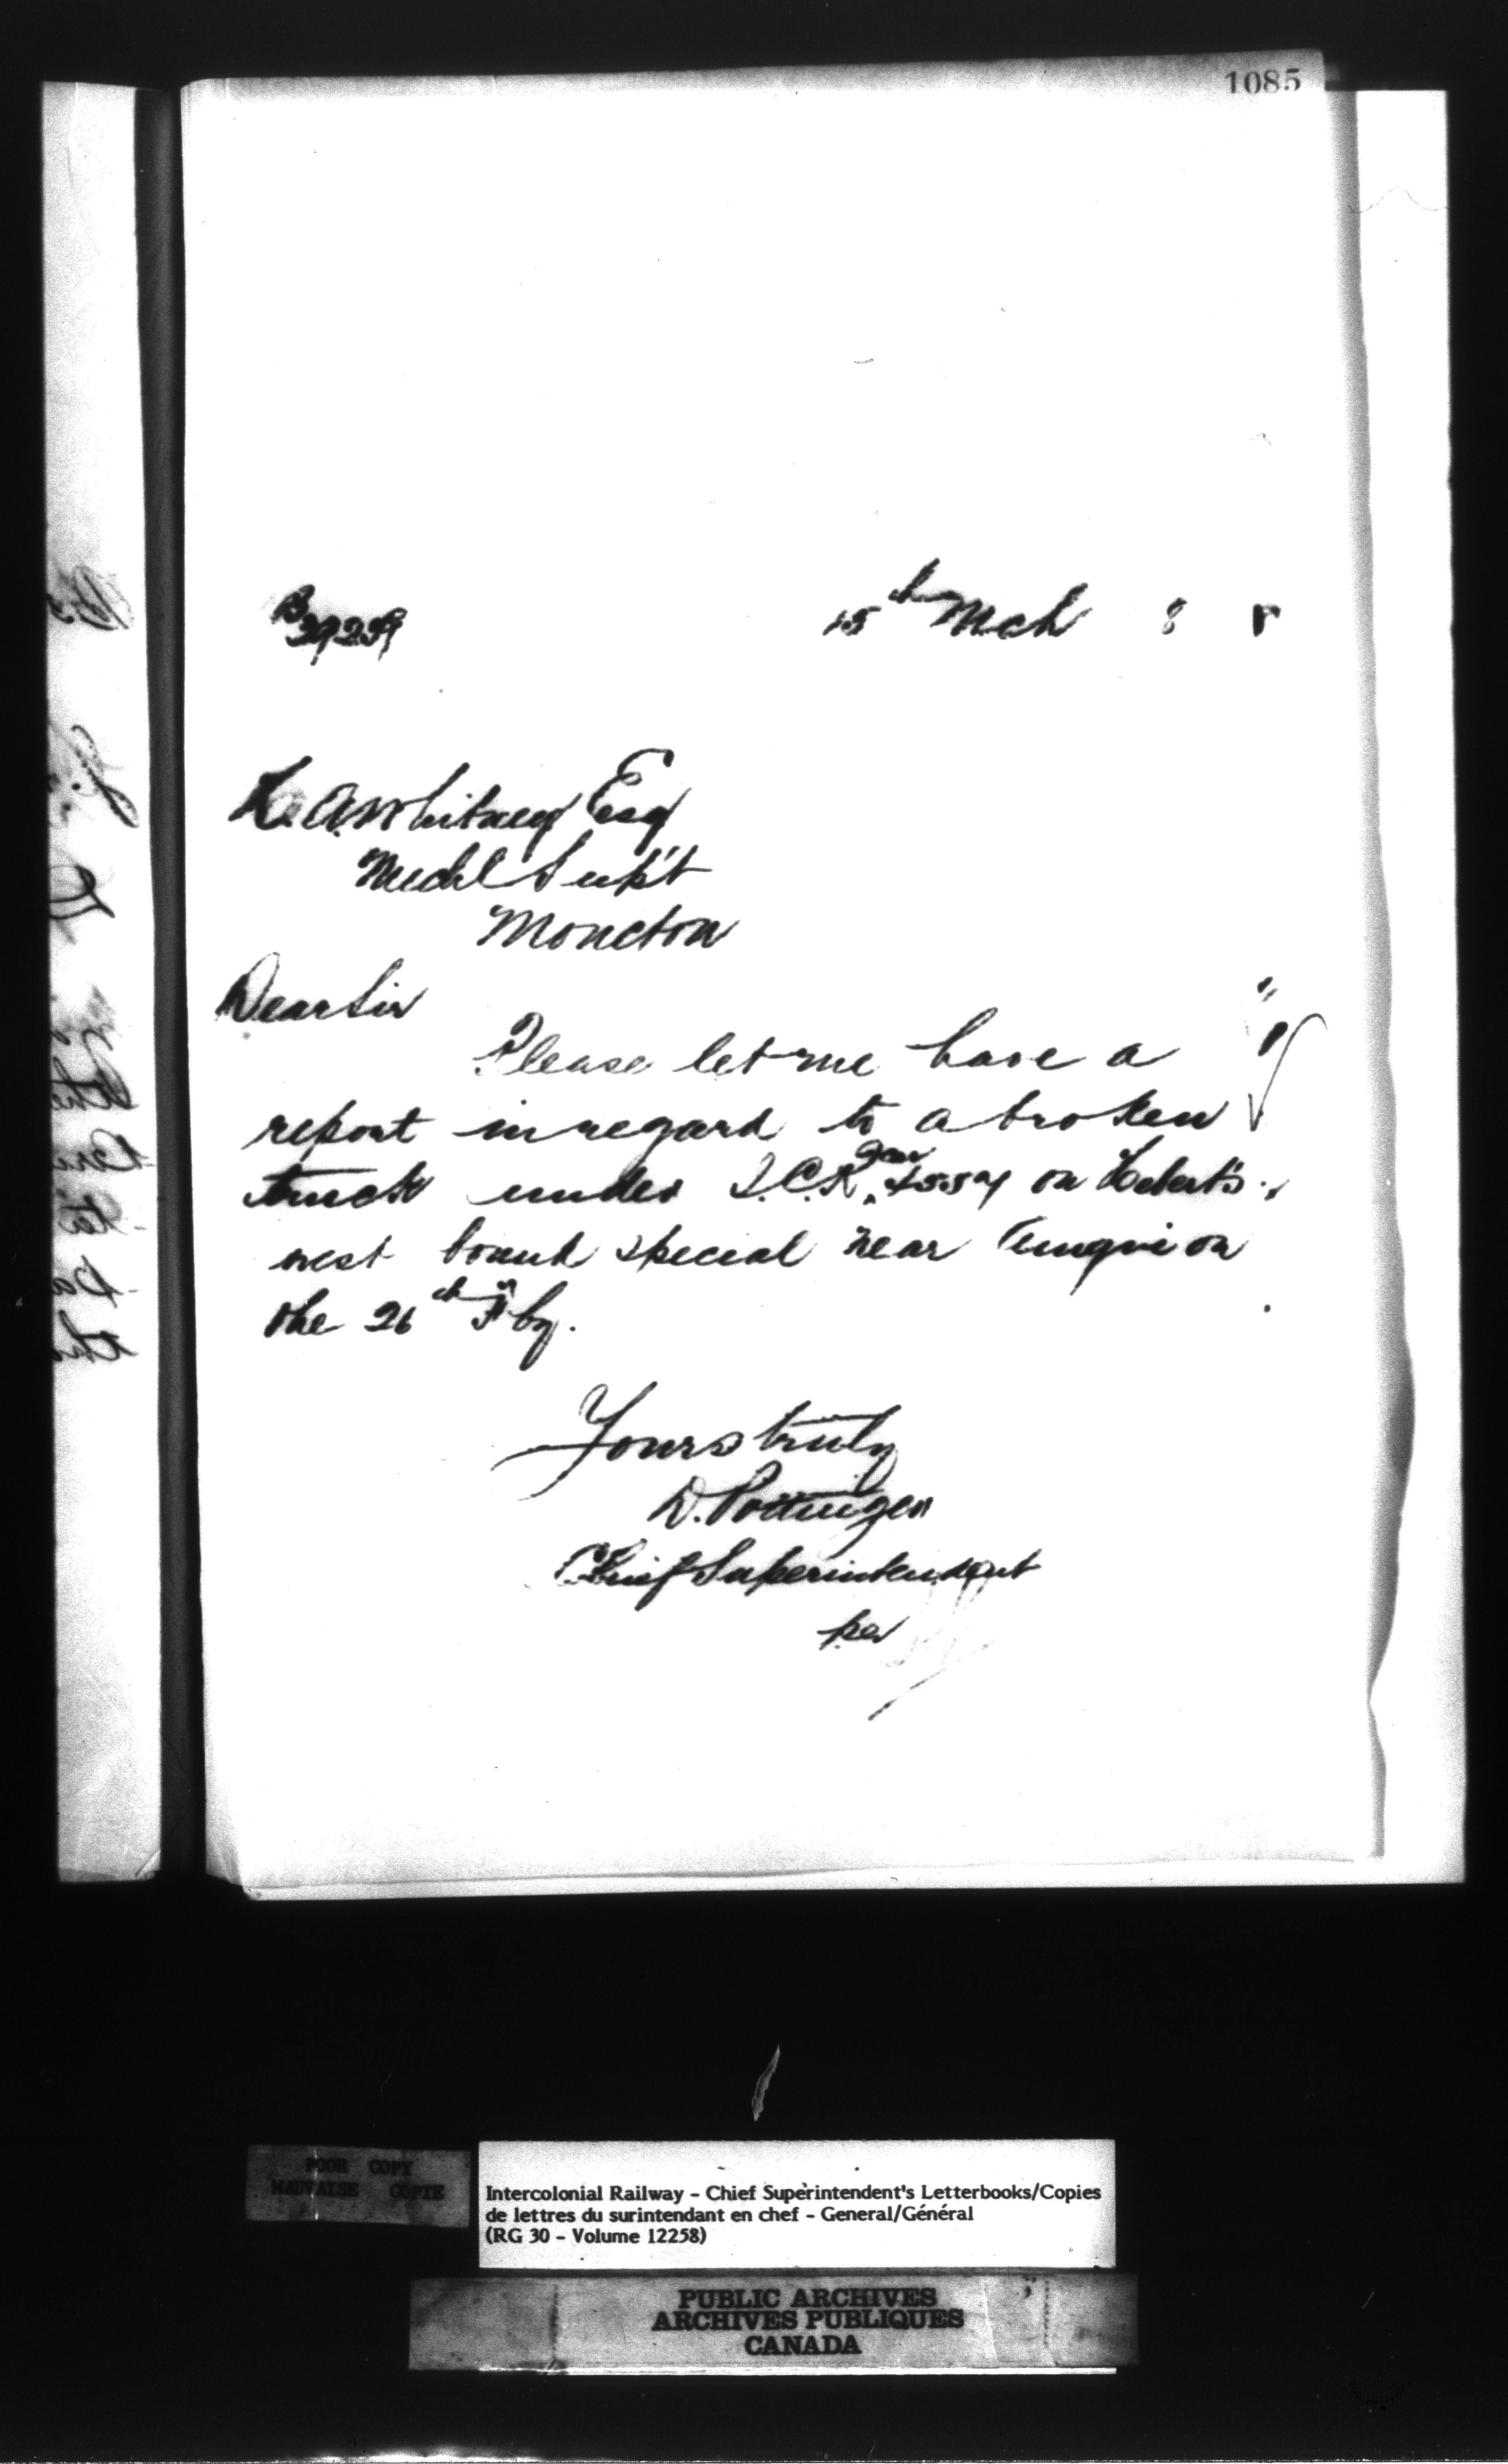 1085
B 39259
15th Mch 8 8
H. A. Whitney Esq
Mechl Supt
Moncton
Dear Sir
Please let me have a
report in regard to a broken
truck under I.C.R. car 4554 on Hebert's
west bound special near Amqui on
the 26th Feby.
Yours truly
D. Pottinger
Chief Superintendent
per
POOR COPY
MAUVAISE COPIE
Intercolonial Railway - Chief Superintendent's Letterbooks/Copies
de lettres du surintendant en chef - General/Général
(RG 30 - Volume 12258)
PUBLIC ARCHIVES
ARCHIVES PUBLIQUES
CANADA